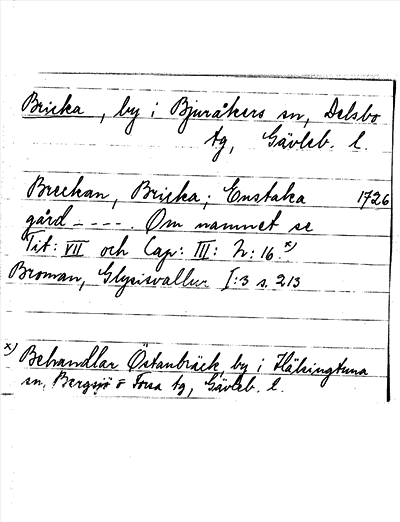 Bricka, by i Bjuråkers sn, Delsbo
tg, Gävleb. l.
Breckan, Bricka; Enstaka 1726
gård ----. Om namnet se
Tit: VII och Cap: III: h: 16. x)
Broman, Glysisvallur I:3 s. 213
x) Behandlar Östanbräck, by i Hälsingtuna
sn, Bergsjö o Forsa tg, Gävleb. l.